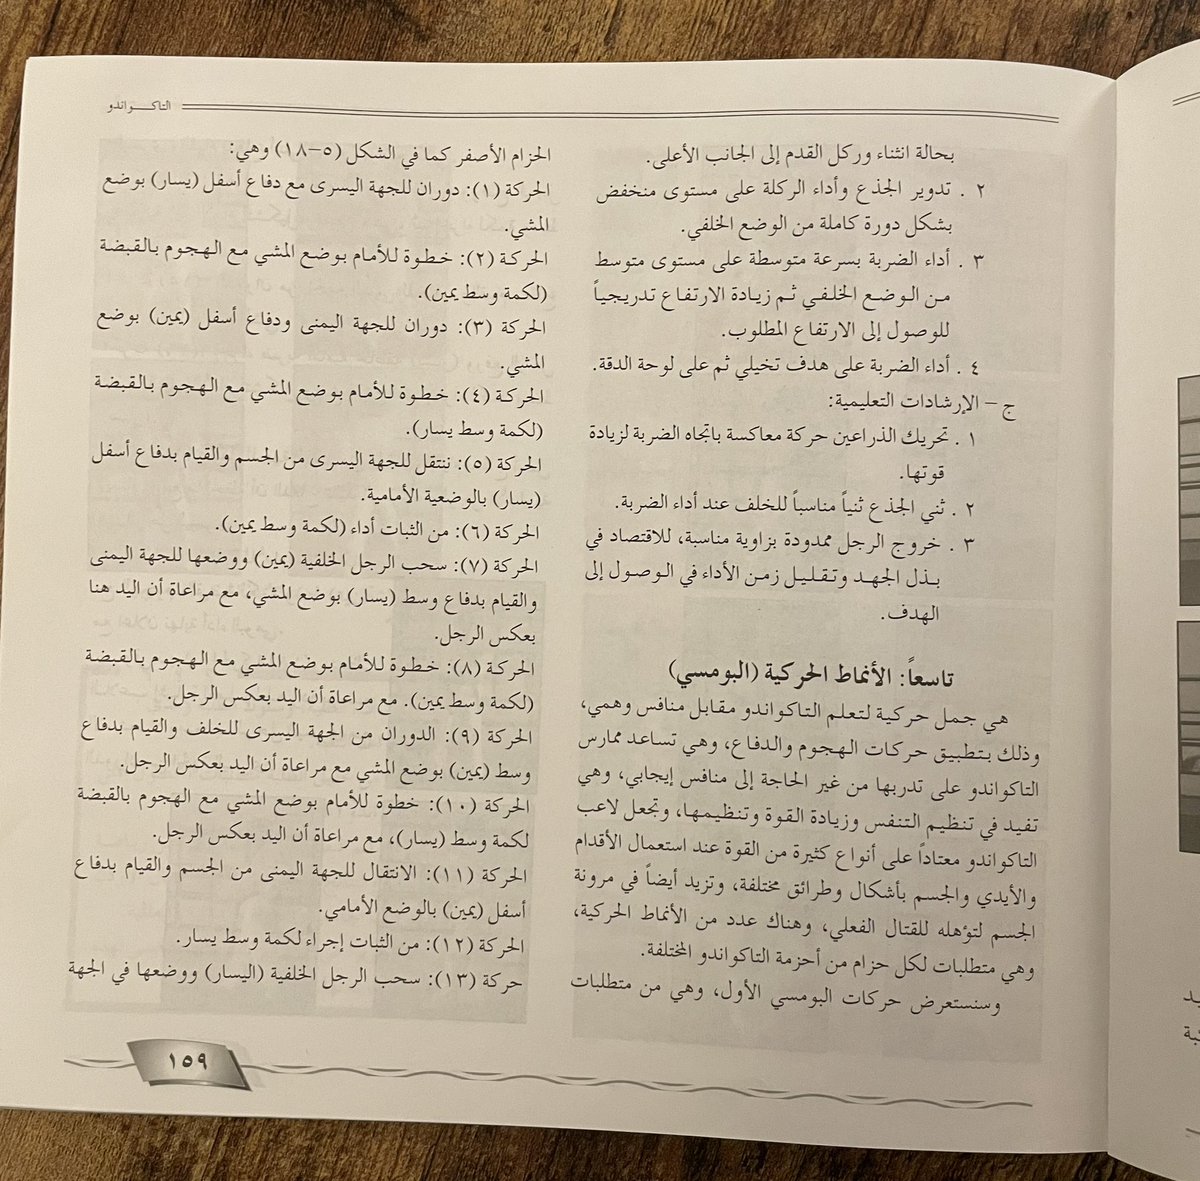 التاكـــواندو
بحالة انثناء وركل القدم إلى الجانب الأعلى.
٢ . تدوير الجذع وأداء الركلة على مستوى منخفض
بشكل دورة كاملة من الوضع الخلفي.
٣ . أداء الضربة بسرعة متوسطة على مستوى متوسط
من الوضع الخلفي ثم زيادة الارتفاع تدريجياً
للوصول إلى الارتفاع المطلوب.
٤ . أداء الضربة على هدف تخيلي ثم على لوحة الدقة.
ج – الإرشادات التعليمية:
١ . تحريك الذراعين حركة معاكسة باتجاه الضربة لزيادة
قوتها.
٢ . ثني الجذع ثنياً مناسباً للخلف عند أداء الضربة.
٣ . خروج الرجل ممدودة بزاوية مناسبة، للاقتصاد في
بذل الجهد وتقليل زمن الأداء في الوصول إلى
الهدف.
تاسعاً: الأنماط الحركية (البومسي)
هي جمل حركية لتعلم التاكواندو مقابل منافس وهمي،
وذلك بتطبيق حركات الهجوم والدفاع، وهي تساعد ممارس
التاكواندو على تدربها من غير الحاجة إلى منافس إيجابي، وهي
تفيد في تنظيم التنفس وزيادة القوة وتنظيمها، وتجعل لاعب
التاكواندو معتاداً على أنواع كثيرة من القوة عند استعمال الأقدام
والأيدي والجسم بأشكال وطرائق مختلفة، وتزيد أيضاً في مرونة
الجسم لتؤهله للقتال الفعلي، وهناك عدد من الأنماط الحركية،
وهي متطلبات لكل حزام من أحزمة التاكواندو المختلفة.
وسنستعرض حركات البومسي الأول، وهي من متطلبات
الحزام الأصفر كما في الشكل (٥–١٨) وهي:
الحركة (١): دوران للجهة اليسرى مع دفاع أسفل (يسار) بوضع
المشي.
الحركة (٢): خطوة للأمام بوضع المشي مع الهجوم بالقبضة
(لكمة وسط يمين).
الحركة (٣): دوران للجهة اليمنى ودفاع أسفل (يمين) بوضع
المشي.
الحركة (٤): خطوة للأمام بوضع المشي مع الهجوم بالقبضة
(لكمة وسط يسار).
الحركة (٥): ننتقل للجهة اليسرى من الجسم والقيام بدفاع أسفل
(يسار) بالوضعية الأمامية.
الحركة (٦): من الثبات أداء (لكمة وسط يمين).
الحركة (٧): سحب الرجل الخلفية (يمين) ووضعها للجهة اليمنى
والقيام بدفاع وسط (يسار) بوضع المشي، مع مراعاة أن اليد هنا
بعكس الرجل.
الحركة (٨): خطوة للأمام بوضع المشي مع الهجوم بالقبضة
(لكمة وسط يمين). مع مراعاة أن اليد بعكس الرجل.
الحركة (٩): الدوران من الجهة اليسرى للخلف والقيام بدفاع
وسط (يمين) بوضع المشي مع مراعاة أن اليد بعكس الرجل.
الحركة (١٠): خطوة للأمام بوضع المشي مع الهجوم بالقبضة
لكمة وسط (يسار)، مع مراعاة أن اليد بعكس الرجل.
الحركة (١١): الانتقال للجهة اليمنى من الجسم والقيام بدفاع
أسفل (يمين) بالوضع الأمامي.
الحركة (١٢): من الثبات إجراء لكمة وسط يسار.
حركة (١٣): سحب الرجل الخلفية (اليسار) ووضعها في الجهة
١٥٩